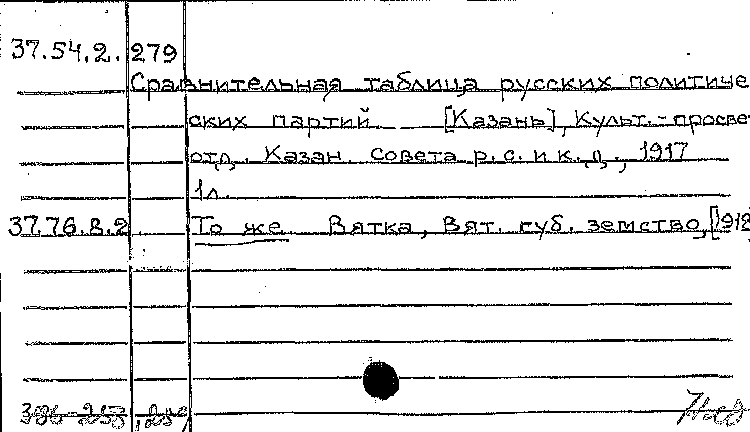 37.54.2.279
Сравнительная таблица русских политиче
ских партий [Казань], Культ.-просвет
отд. Казан. Совета р.с. и к.д., 1917
1л.
37.76.8.2. То же Вятка, Вят. губ. земство, [1918